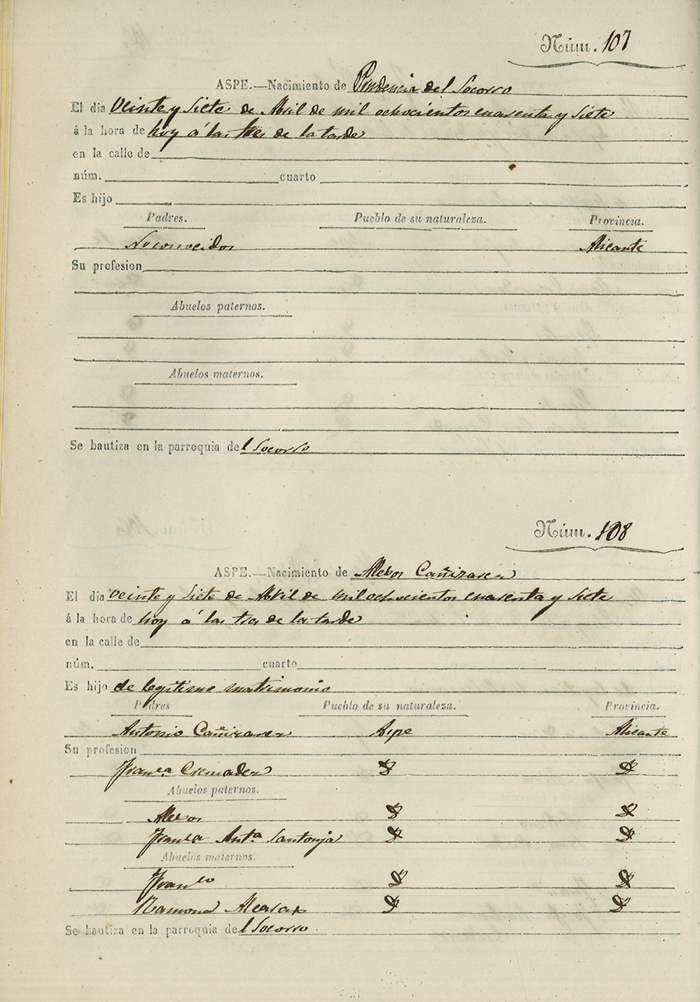 Núm. 107
ASPE.—Nacimiento de Prudencia del Socorro
El dia veinte y siete de Abril de mil ochocientos cuarenta y siete
á la hora de hoy á las tres de la tarde
en la calle de
núm. cuarto
Es hijo
Padres. Pueblo de su naturaleza. Provincia.
No conocidos Alicante
Su profesion
Abuelos paternos.
Abuelos maternos.
Se bautiza en la parroquia del Socorro
Núm. 108
ASPE.—Nacimiento de Cañizares
El dia veinte y siete de Abril de mil ochocientos cuarenta y siete
á la hora de hoy á las tres de la tarde
en la calle de
núm. cuarto
Es hijo de legitimo matrimonio
Padres Pueblo de su naturaleza. Provincia.
Antonio Cañizares Aspe Alicante
Su profesion
Franca Cremades
Abuelos paternos.
Franca Anta Santonja
Abuelos maternos.
Franco
Ramona Alcaraz
Se bautiza en la parroquia del Socorro